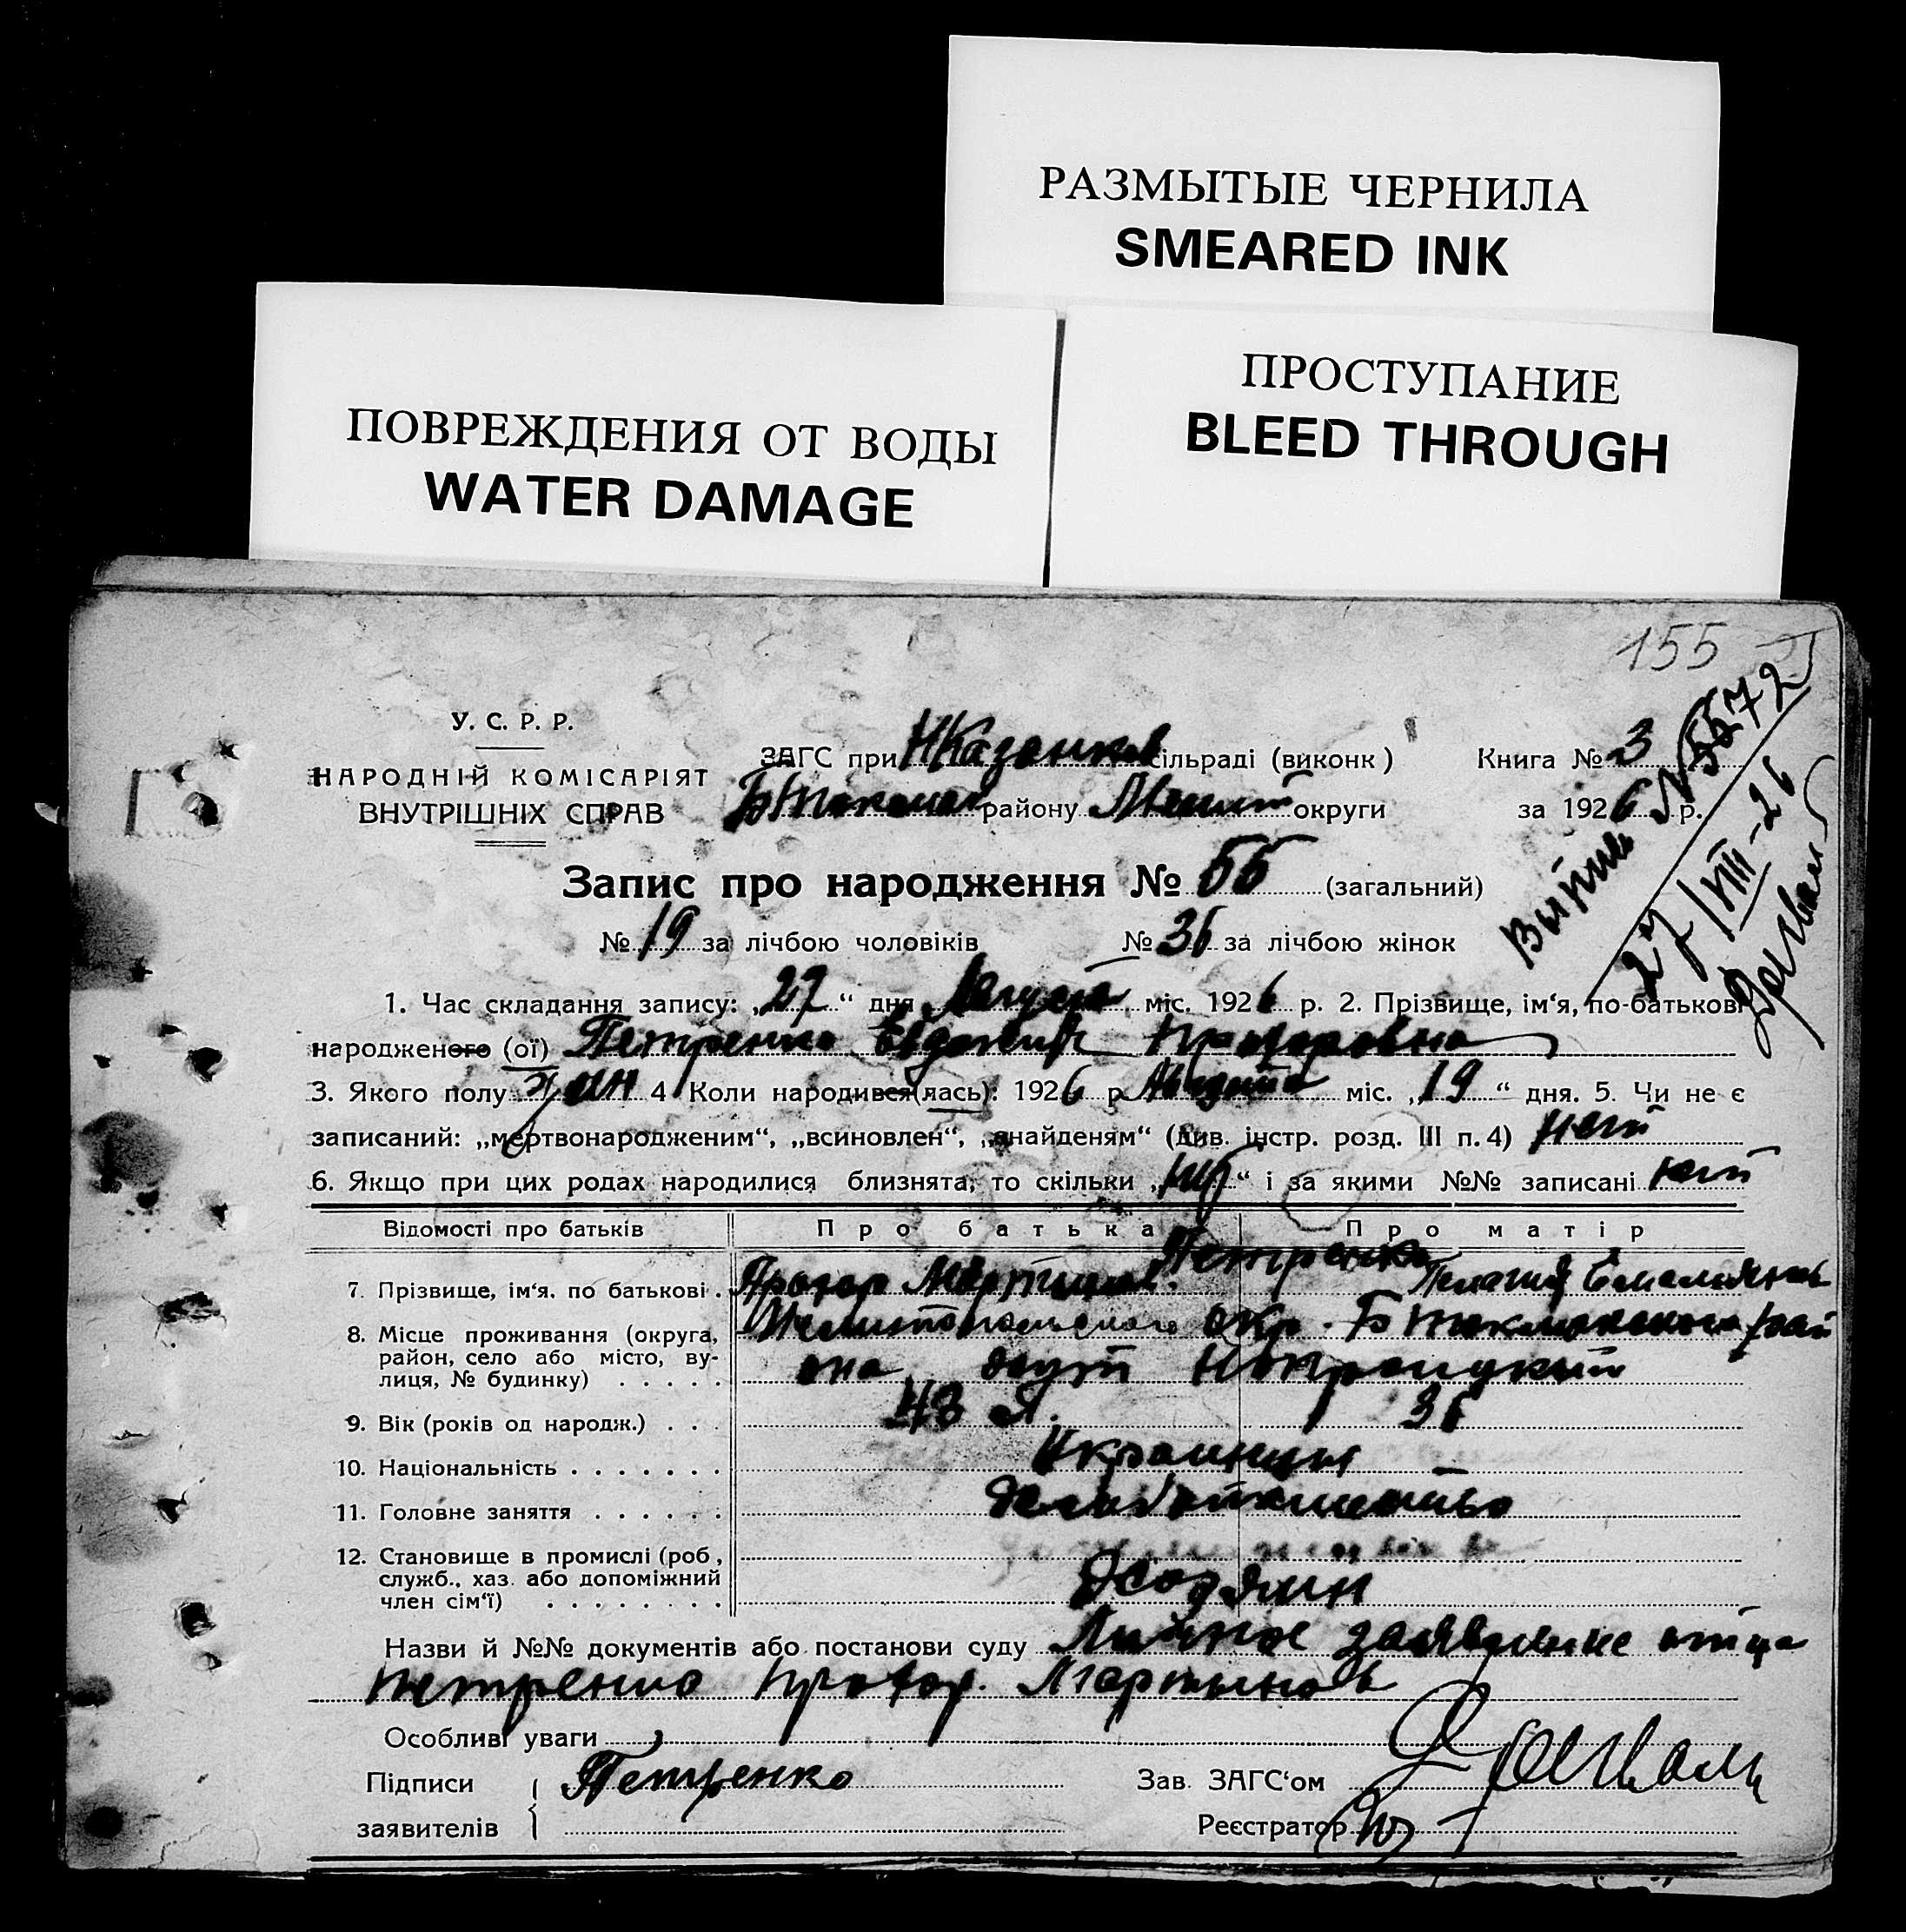 РАЗМЫТЫЕ ЧЕРНИЛА
SMEARED INK
ПРОСТУПАНИЕ
BLEED THROUGH
ПОВРЕЖДЕНИЯ ОТ ВОДЫ
WATER DAMAGE
155
У. С. Р. Р.
НАРОДНІЙ КОМІСАРІЯТ
ВНУТРІШНІХ СПРАВ
ЗАГС при НКазанков сільраді (виконк) Книга № 3
БТокмак району Мелит округи за 1926 р.
27/VIII-26
Запис про народження № 55 (загальний)
№ 19 за лічбою чоловіків № 36 за лічбою жінок
1. Час складання запису: „27“ дня Августа міс. 1926 р. 2. Прізвище, ім‘я, по-батькові
народженого (ої) Петренко Евдокия Прохоровна
3. Якого полу жен 4 Коли народився(лась): 1926 р Августа міс. „19“ дня. 5. Чи не є
записаний: „мертвонародженим“, „всиновлен“, „знайденям“ (див. інстр. розд. III п. 4) нет
6. Якщо при цих родах народилися близнята, то скільки „нет“ і за якими №№ записані нет
Відомості про батьків Про батька Про матір
Петренко
7. Прізвище, ім‘я. по батькові . Прохор Мартинов. Пелагия Емельянов
8. Місце проживання (округа, Мелитопольского окр. Б Токмакского рай
район, село або місто, ву-
лиця, № будинку) . . . . . она
9. Вік (років од народж.) . . . 43 л. 36
10. Національність . . . . . . . Украинцы
11. Головне заняття . . . . . .
12. Становище в промислі (роб,
служб., хаз. або допоміжний Хозяин
член сім‘ї) . . . . . . . .
Назви й №№ документів або постанови суду Личное заявление отца
Петренко Прохор. Мартынов
Особливі уваги
Підписи Петренко Зав. ЗАГС‘ом
заявителів Реєстратор